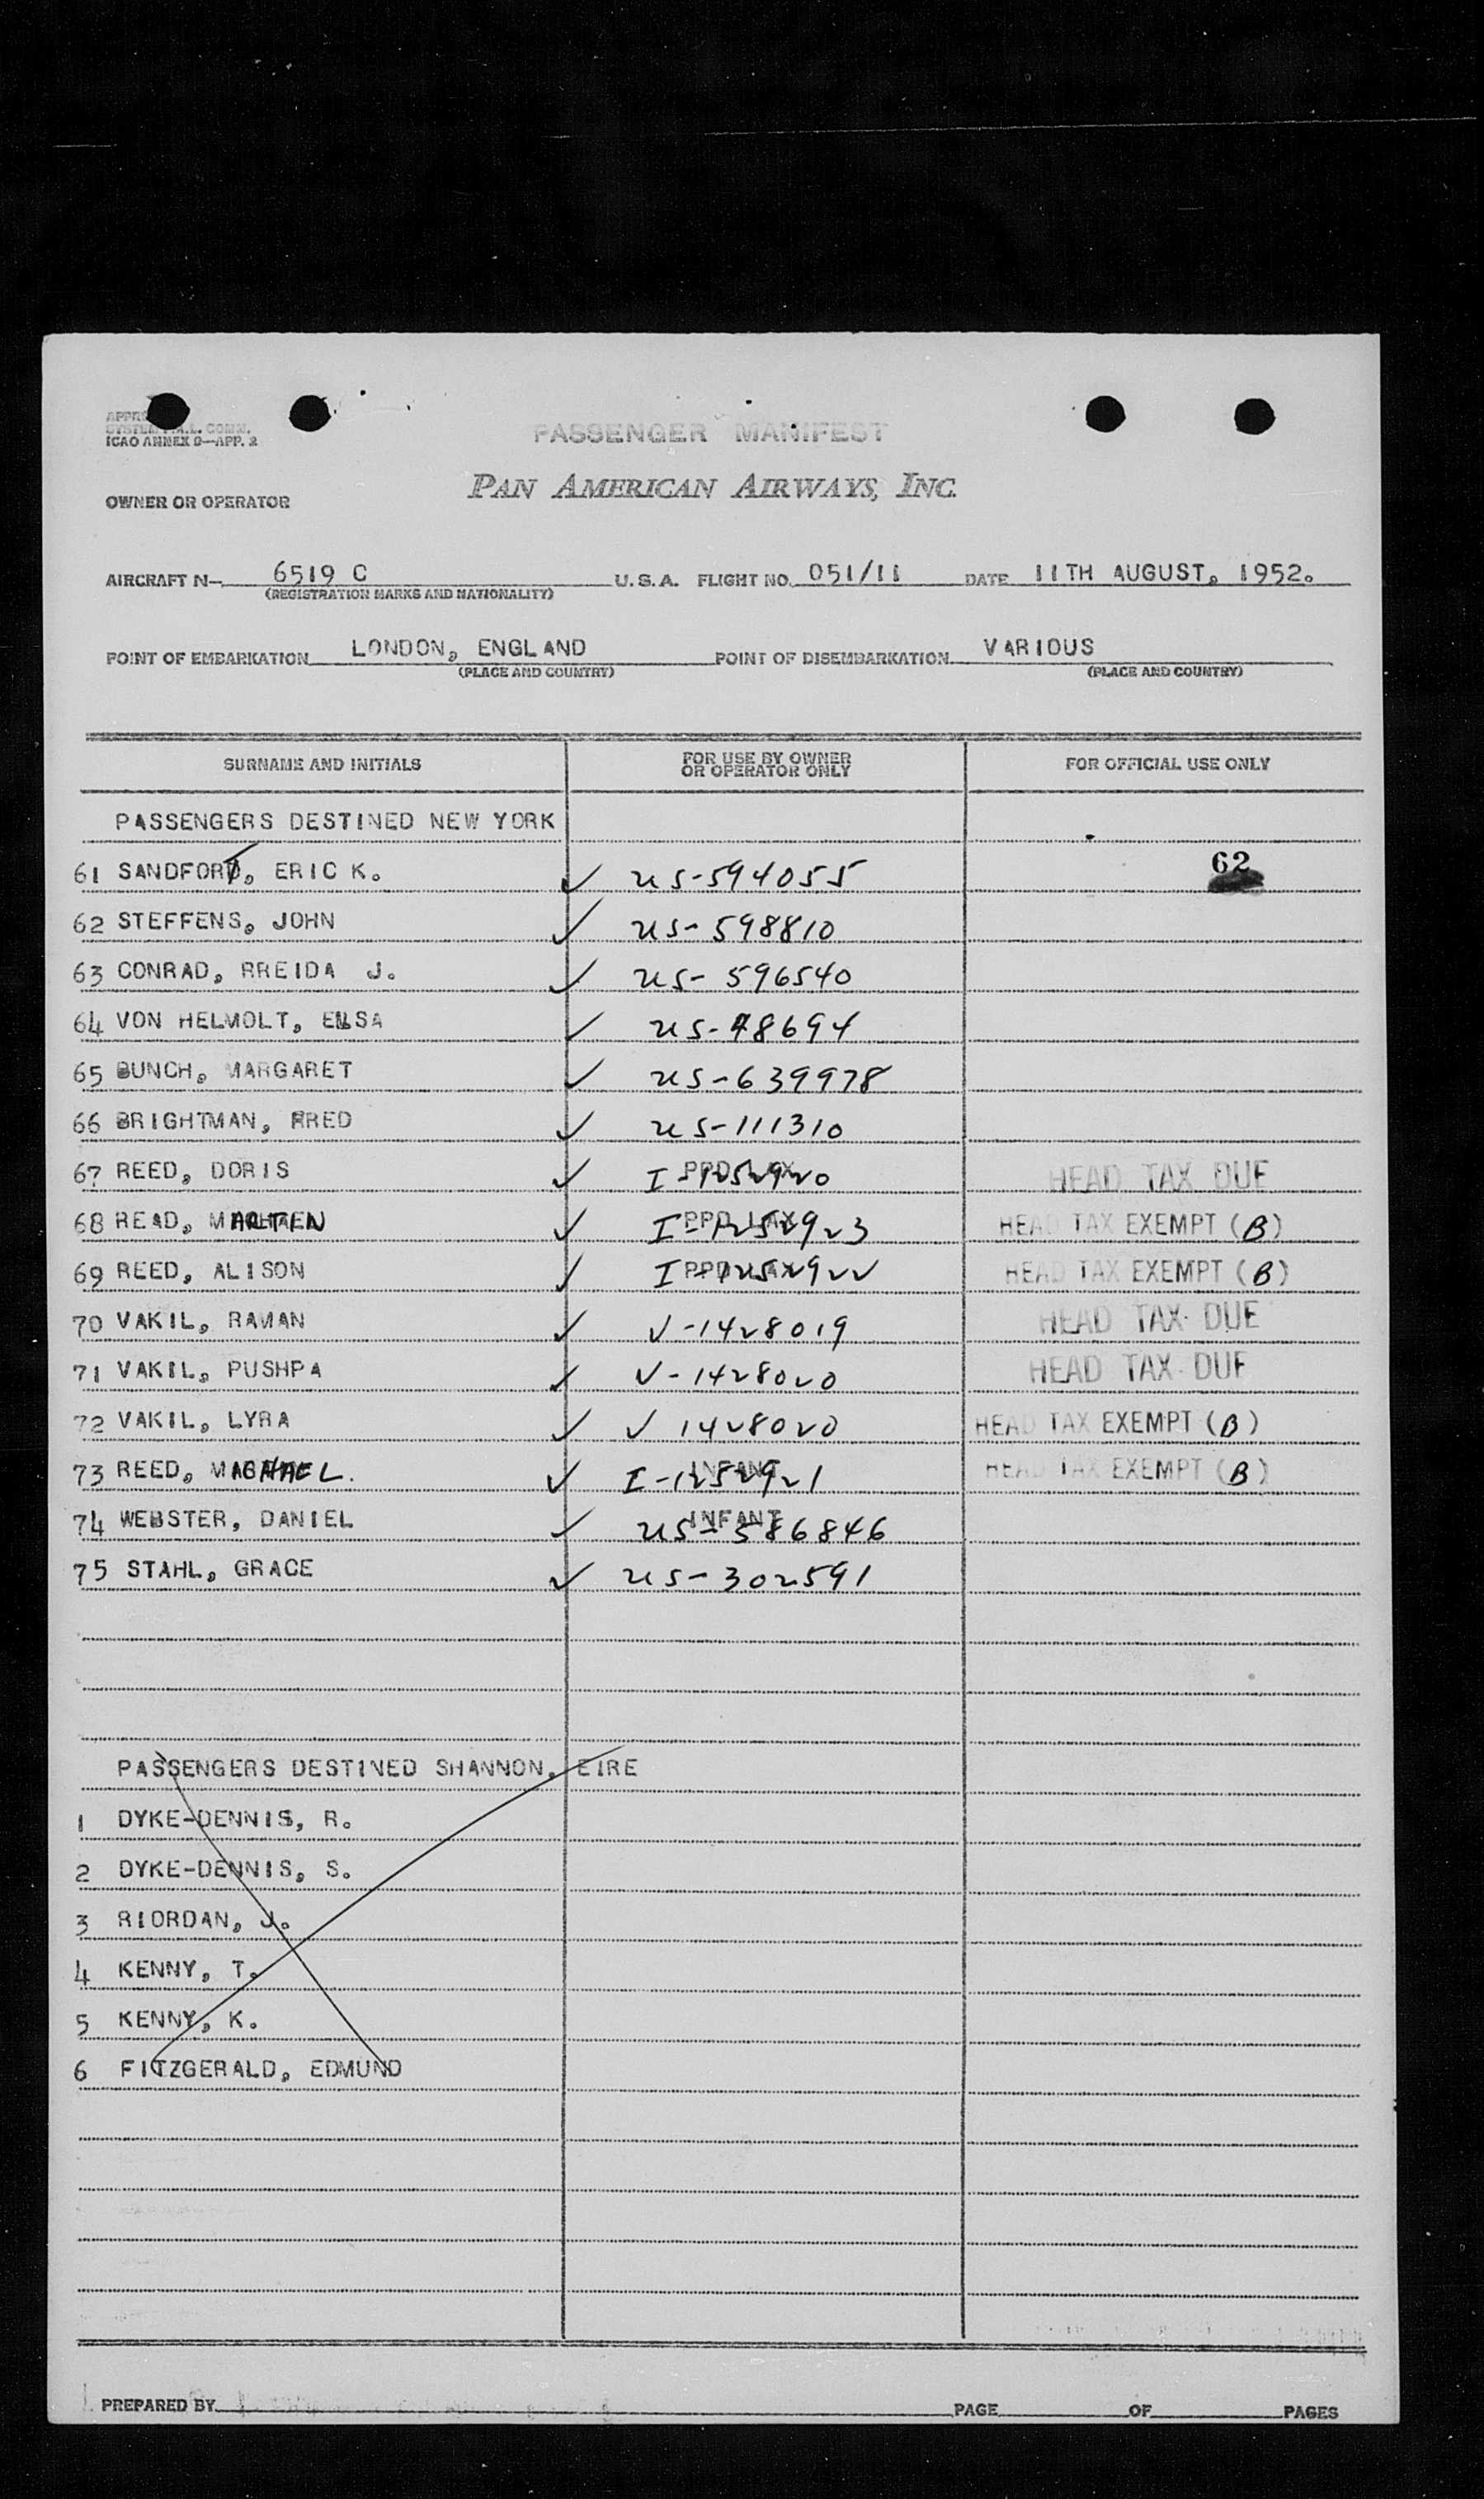 ICAO ANNEX 9—APP. 2
PASSENGER MANIFEST
OWNER OR OPERATOR
PAN AMERICAN AIRWAYS, INC.
AIRCRAFT N— 6519 C U. S. A. FLIGHT NO. 051/11 DATE 11TH AUGUST, 1952.
(REGISTRATION MARKS AND NATIONALITY)
POINT OF EMBARKATION LONDON, ENGLAND POINT OF DISEMBARKATION VARIOUS
(PLACE AND COUNTRY) (PLACE AND COUNTRY)
SURNAME AND INITIALS FOR USE BY OWNER OR OPERATOR ONLY FOR OFFICIAL USE ONLY
PASSENGERS DESTINED NEW YORK
61 SANDFORD, ERIC K. ✓ US-594055 62
62 STEFFENS, JOHN ✓ US-598810
63 CONRAD, RREIDA J. ✓ US-596540
64 VON HELMOLT, ELSA ✓ US-78694
65 BUNCH, MARGARET ✓ US-639978
66 BRIGHTMAN, FRED ✓ US-111310
67 REED, DORIS ✓ I-1252920 HEAD TAX DUE
68 READ, MARTEN ✓ I-1252923 HEAD TAX EXEMPT (B)
69 REED, ALISON ✓ I-1252922 HEAD TAX EXEMPT (B)
70 VAKIL, RAMAN ✓ V-1428019 HEAD TAX DUE
71 VAKIL, PUSHPA ✓ V-1428020 HEAD TAX DUE
72 VAKIL, LYRA ✓ V 1428020 HEAD TAX EXEMPT (B)
73 REED, MICHAEL. ✓ INFANT I-1252921 HEAD TAX EXEMPT (B)
74 WEBSTER, DANIEL ✓ INFANT US-586846
75 STAHL, GRACE ✓ US-302591
PASSENGERS DESTINED SHANNON, EIRE
1 DYKE-DENNIS, R.
2 DYKE-DENNIS, S.
3 RIORDAN, J.
4 KENNY, T.
5 KENNY, K.
6 FITZGERALD, EDMUND
PREPARED BY PAGE OF PAGES